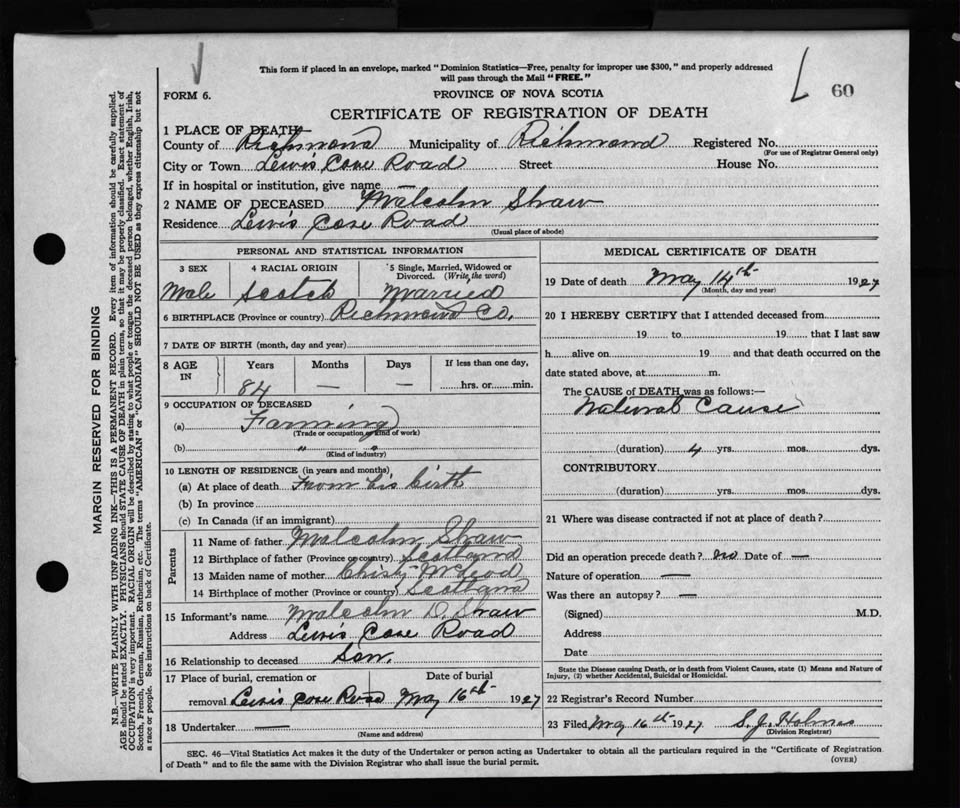 This form if placed in an envelope, marked "Dominion Statistics—Free, penalty for improper use $300," and properly addressed
will pass through the Mail "FREE."
60
FORM 6.
PROVINCE OF NOVA SCOTIA
CERTIFICATE OF REGISTRATION OF DEATH
1 PLACE OF DEATH—
County of Richmond Municipality of Richmond Registered No.
(For use of Registrar General only)
City or Town Lewis Cove Road Street House No.
If in hospital or institution, give name —
2 NAME OF DECEASED Malcolm Shaw
Residence Lewis Cove Road
(Usual place of abode)
PERSONAL AND STATISTICAL INFORMATION
3 SEX 4 RACIAL ORIGIN 5 Single, Married, Widowed or
Divorced. (Write the word)
Male Scotch Married
6 BIRTHPLACE (Province or country) Richmond Co.
7 DATE OF BIRTH (month, day and year)
8 AGE IN Years Months Days If less than one day,
84 — — hrs. or min.
9 OCCUPATION OF DECEASED
(a) Farming
(Trade or occupation or kind of work)
(b) " "
(Kind of industry)
10 LENGTH OF RESIDENCE (in years and months)
(a) At place of death From his birth
(b) In province
(c) In Canada (if an immigrant)
Parents
11 Name of father Malcolm Shaw
12 Birthplace of father (Province or country) Scotland
13 Maiden name of mother Christy McLeod
14 Birthplace of mother (Province or country) Scotland
15 Informant's name Malcolm D. Shaw
Address Lewis Cove Road
16 Relationship to deceased Son.
17 Place of burial, cremation or Date of burial
removal Lewis Cove Road May 16th 1927
18 Undertaker —
(Name and address)
MEDICAL CERTIFICATE OF DEATH
19 Date of death May 14th 1927
(Month, day and year)
20 I HEREBY CERTIFY that I attended deceased from
19 to 19 that I last saw
h alive on 19 and that death occurred on the
date stated above, at m.
The CAUSE of DEATH was as follows:—
Natural Cause
(duration) 4 yrs. mos. dys.
CONTRIBUTORY
(duration) yrs. mos. dys.
21 Where was disease contracted if not at place of death?
Did an operation precede death? no Date of —
Nature of operation —
Was there an autopsy? —
(Signed) M.D.
Address
Date
State the Disease causing Death, or in death from Violent Causes, state (1) Means and Nature of
Injury, (2) whether Accidental, Suicidal or Homicidal.
22 Registrar's Record Number
23 Filed May 16th 1927 S. J. Holmes
(Division Registrar)
SEC. 46—Vital Statistics Act makes it the duty of the Undertaker or person acting as Undertaker to obtain all the particulars required in the "Certificate of Registration
of Death" and to file the same with the Division Registrar who shall issue the burial permit.
(OVER)
MARGIN RESERVED FOR BINDING
N.B.—WRITE PLAINLY WITH UNFADING INK—THIS IS A PERMANENT RECORD. Every item of information should be carefully supplied.
AGE should be stated EXACTLY. PHYSICIANS should STATE CAUSE OF DEATH in plain terms, so that it may be properly classified. Exact statement of
OCCUPATION is very important. RACIAL ORIGIN will be described by stating to what people or tongue the deceased person belonged, whether English, Irish,
Scotch, French, German, Russian, Ruthenian, etc. The terms "AMERICAN" or "CANADIAN" SHOULD NOT BE USED as they express citizenship but not
a race or people. See instructions on back of Certificate.